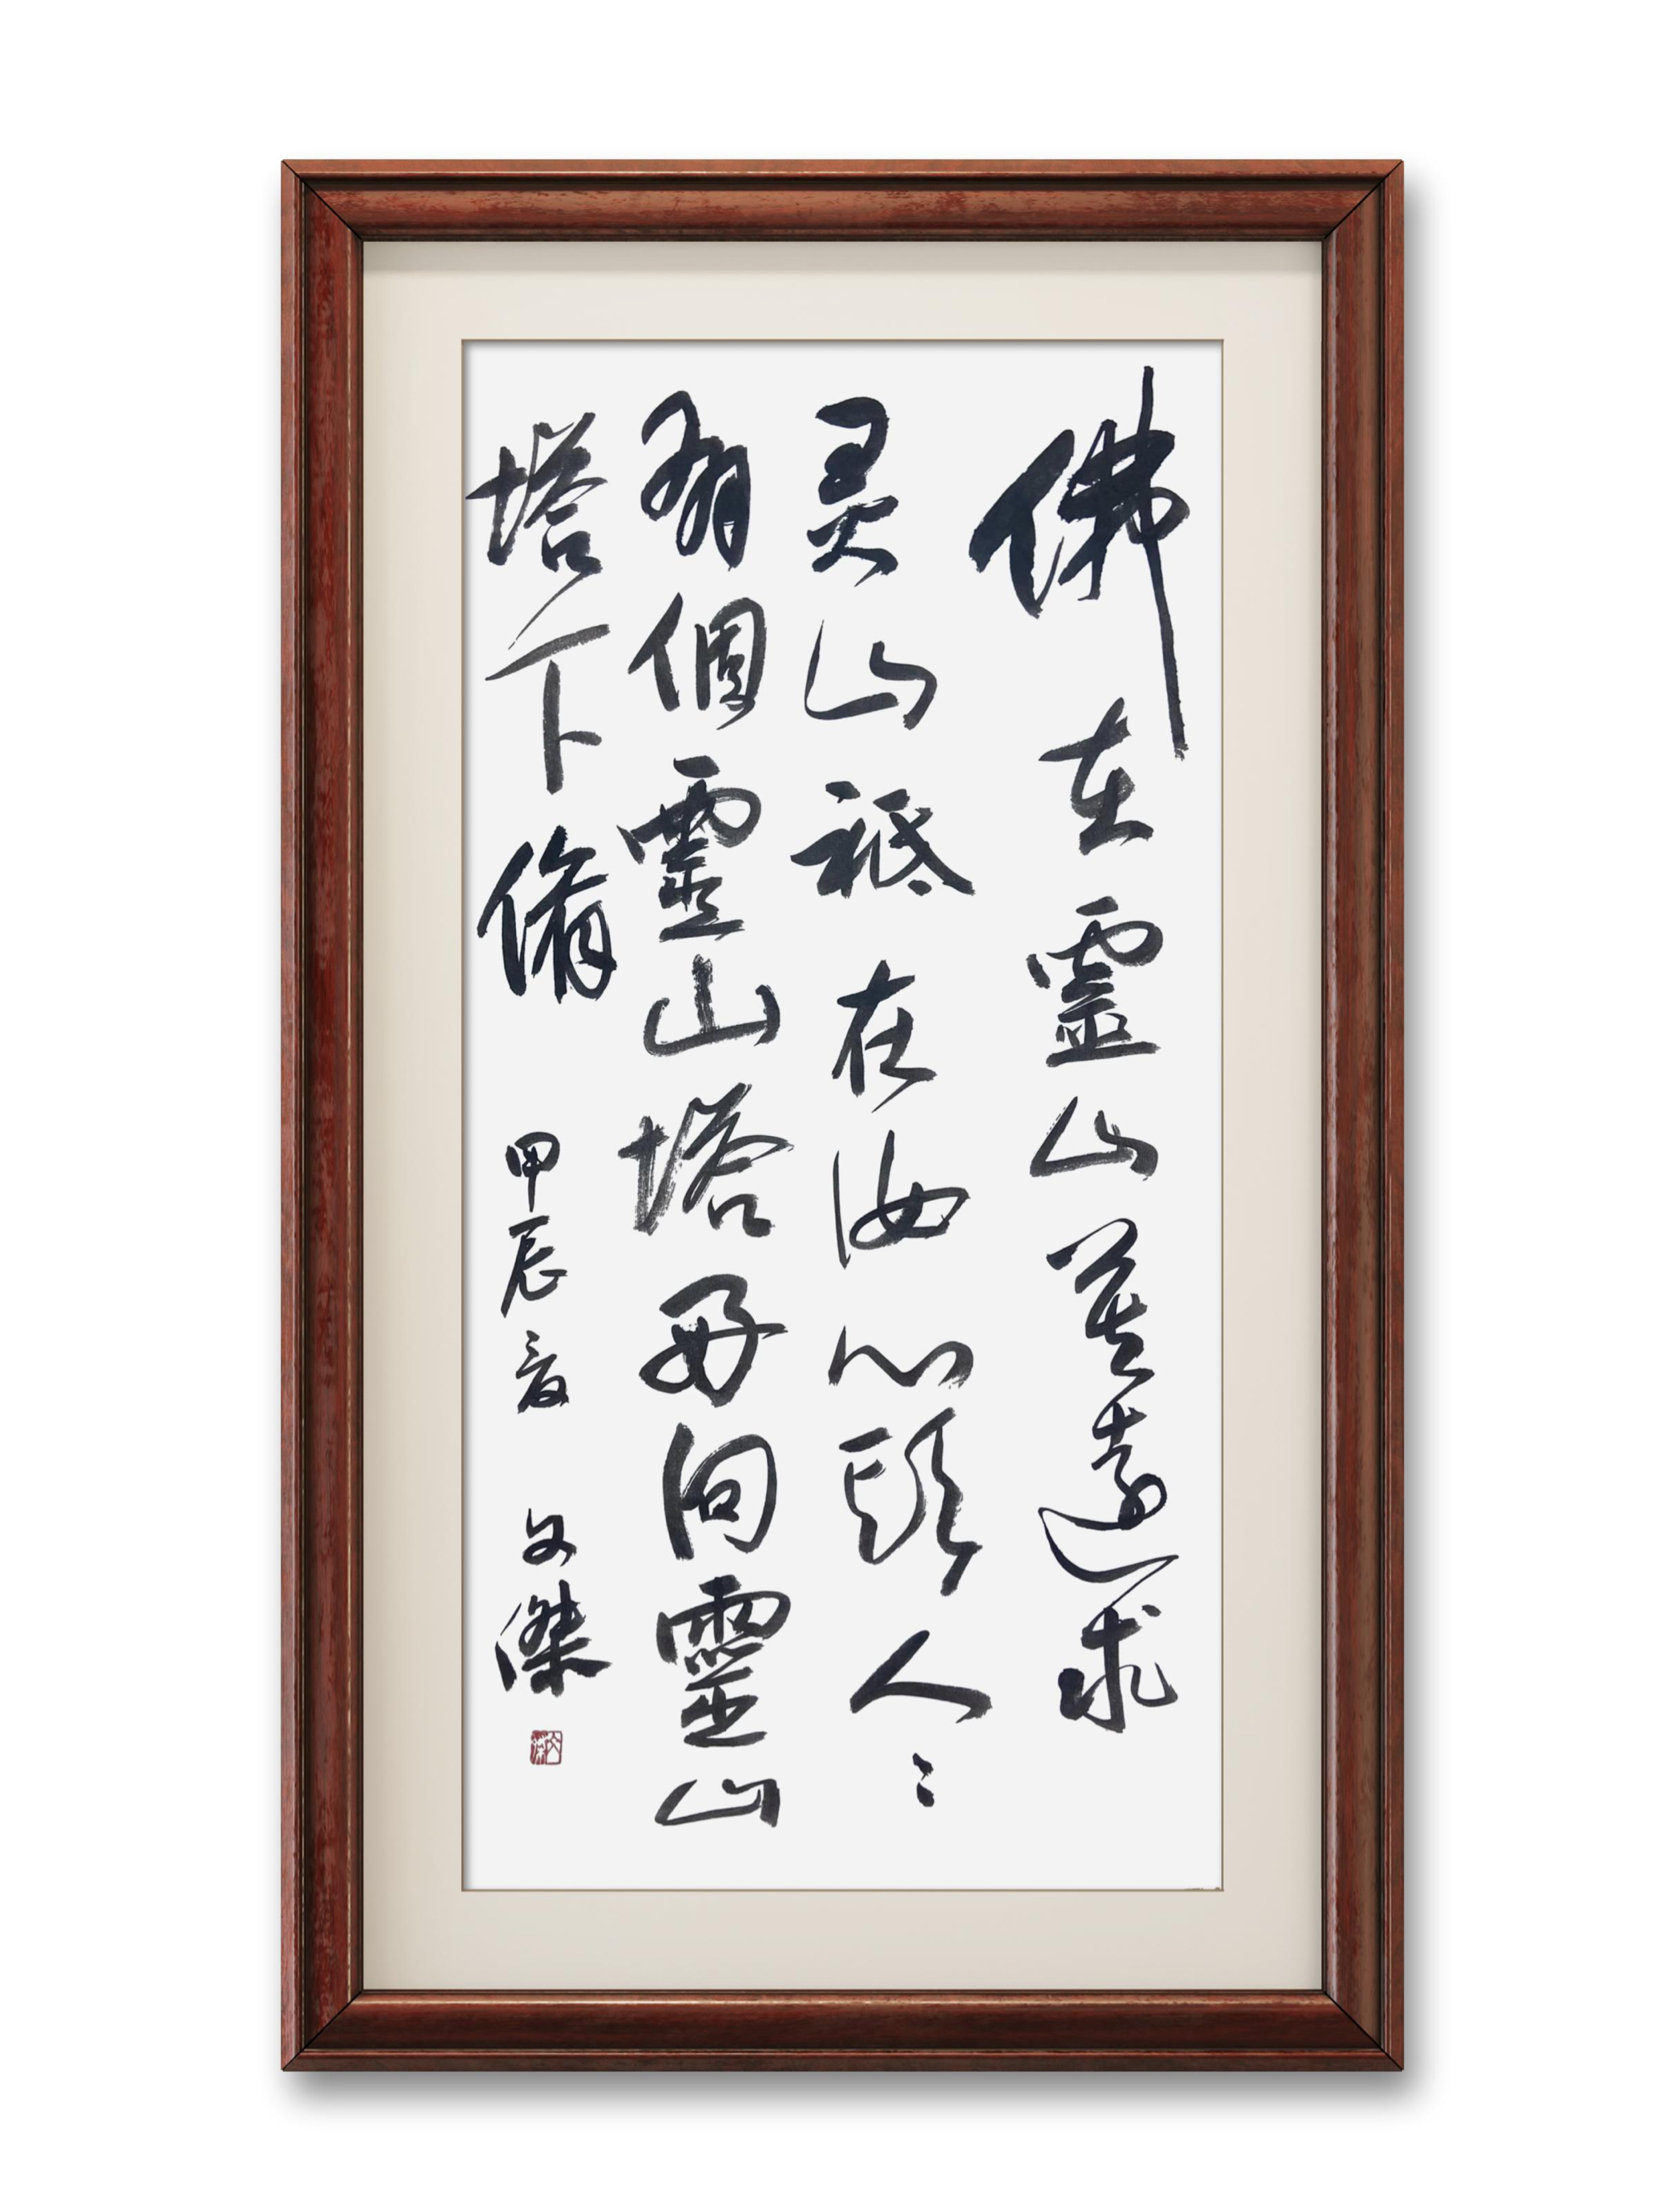 佛在靈山莫遠求
灵山祗在汝心頭人〻
有個靈山塔好向靈山
塔下脩 甲辰夏 文傑
文傑